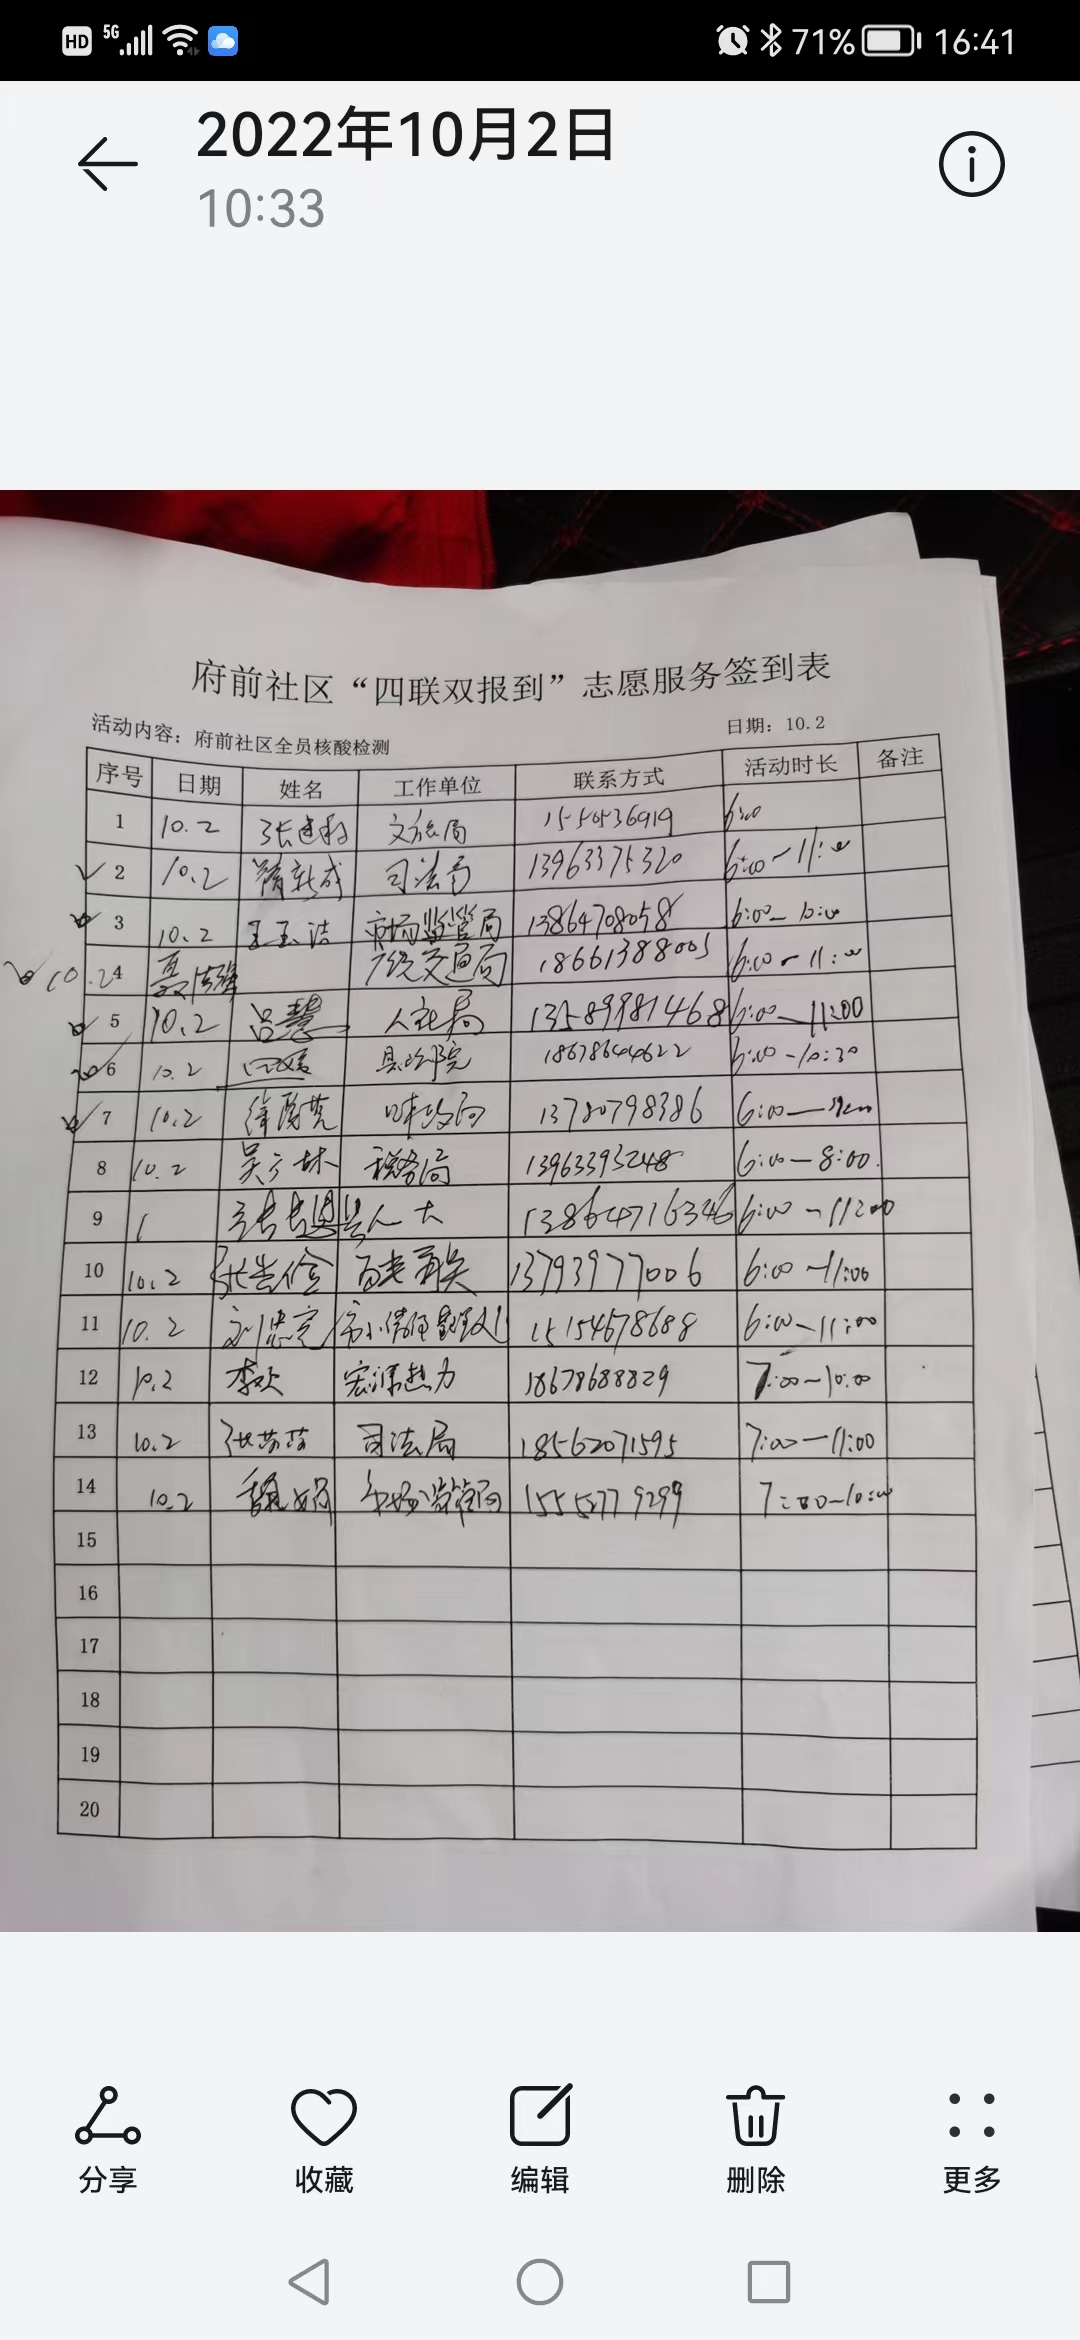 HD 5G 71% 16:41
2022年10月2日
10:33
府前社区“四联双报到”志愿服务签到表
活动内容：府前社区全员核酸检测 日期：10.2
序号 日期 姓名 工作单位 联系方式 活动时长 备注
1 10.2 文旅局 6:00
2 10.2 司法局 13963375320 6:00-11:00
3 10.2 王玉洁 市场监管局 13864708058 6:00-10:00
4 10.2 交通局 18661388005 6:00-11:00
5 10.2 吕慧 人社局 13589981468 6:00-11:00
6 10.2 18678644622 6:00-10:30
7 10.2 13780798386 6:00
8 10.2 税务局 13963393248 6:00-8:00
9 县人大 13864716346 6:00-11:00
10 10.2 13793977006 6:00-11:00
11 10.2 15154678688 6:00-11:00
12 10.2 李欢 宏源热力 18678688829 7:00-10:00
13 10.2 司法局 18562071595 7:00-11:00
14 10.2 魏娟 市场监管局 15552779299 7:00-10:00
15
16
17
18
19
20
分享 收藏 编辑 删除 更多